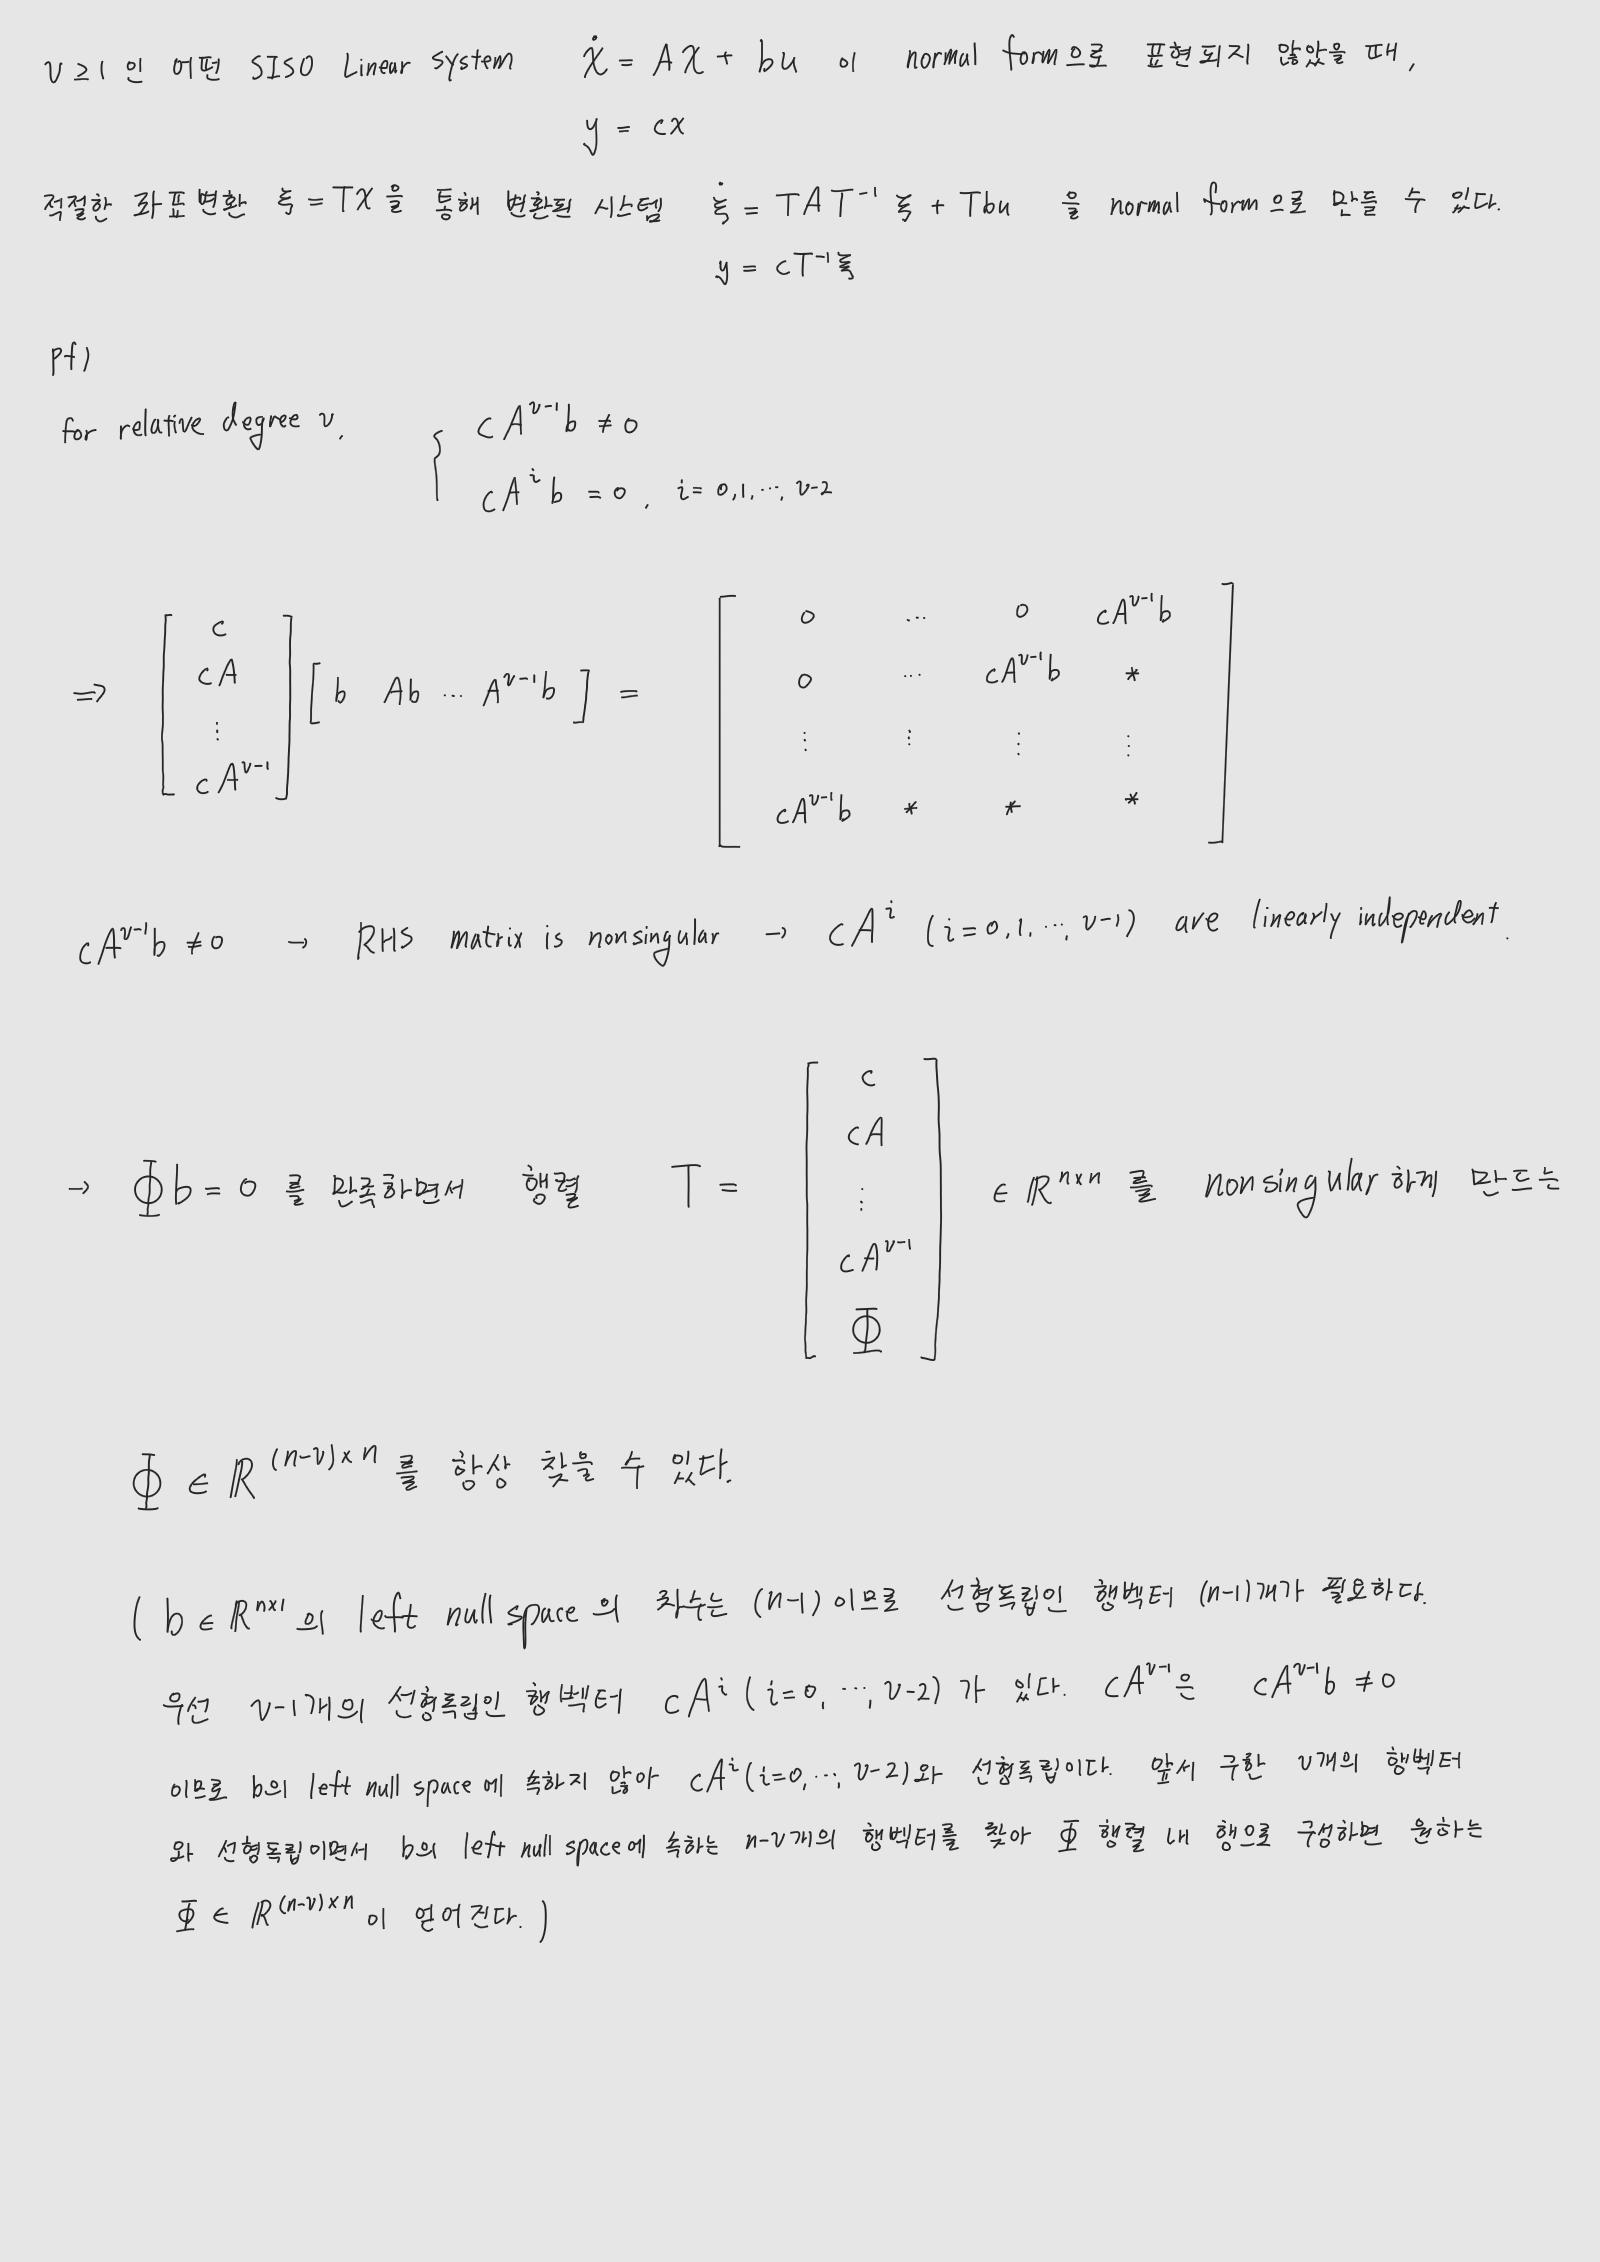 ν ≥ 1 인 어떤 SISO Linear system ẋ = Ax + bu 이 normal form으로 표현되지 않았을 때,
y = cx
적절한 좌표변환 ξ = Tx 을 통해 변환된 시스템 ξ̇ = TAT⁻¹ξ + Tbu 을 normal form으로 만들 수 있다.
y = cT⁻¹ξ
pf)
for relative degree ν, { cA^{ν-1}b ≠ 0
cA^i b = 0, i = 0,1,⋯, ν-2
⇒ [ c ; cA ; ⋮ ; cA^{ν-1} ] [ b Ab ⋯ A^{ν-1}b ] = [ 0 ⋯ 0 cA^{ν-1}b ; 0 ⋯ cA^{ν-1}b * ; ⋮ ⋮ ⋮ ⋮ ; cA^{ν-1}b * * * ]
cA^{ν-1}b ≠ 0 → RHS matrix is nonsingular → cA^i (i = 0,1,⋯, ν-1) are linearly independent.
→ Φb = 0 를 만족하면서 행렬 T = [ c ; cA ; ⋮ ; cA^{ν-1} ; Φ ] ∈ ℝ^{n×n} 를 nonsingular 하게 만드는
Φ ∈ ℝ^{(n-ν)×n} 를 항상 찾을 수 있다.
( b ∈ ℝ^{n×1} 의 left null space 의 차수는 (n-1) 이므로 선형독립인 행벡터 (n-1)개가 필요하다.
우선 ν-1개의 선형독립인 행벡터 cA^i (i=0, ⋯, ν-2) 가 있다. cA^{ν-1}은 cA^{ν-1}b ≠ 0
이므로 b의 left null space 에 속하지 않아 cA^i (i=0, ⋯, ν-2)와 선형독립이다. 앞서 구한 ν개의 행벡터
와 선형독립이면서 b의 left null space에 속하는 n-ν개의 행벡터를 찾아 Φ 행렬 내 행으로 구성하면 원하는
Φ ∈ ℝ^{(n-ν)×n} 이 얻어진다. )